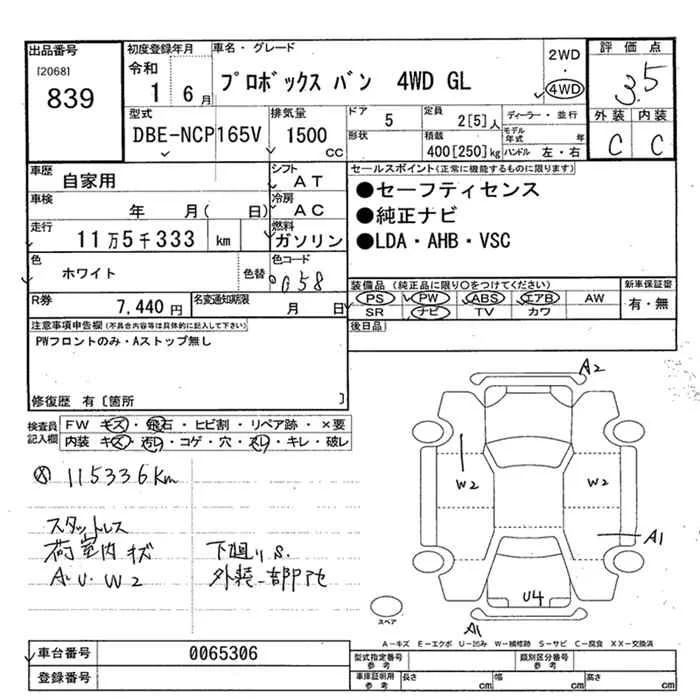 出品番号
[2068]
839
初度登録年月
令和
1 6月
車名・グレード
プロボックス バン 4WD GL
2WD
・
4WD
評価点
3.5
外装 内装
C C
型式
DBE-NCP165V
排気量
1500
cc
ドア 5
形状
定員 2[5]人
積載 400[250]kg
ディーラー・並行
モデル年式 年
ハンドル 左・右
車歴 自家用
シフト AT
車検 年 月( 日)
冷房 AC
走行 11万5千333 km
燃料 ガソリン
色 ホワイト
色替
色コード 058
R券 7,440円
名変通知期限 月 日
セールスポイント(正常に機能するものに限ります)
●セーフティセンス
●純正ナビ
●LDA・AHB・VSC
装備品 (純正品に限り○をつけてください)
PS PW ABS エアB AW
SR ナビ TV カワ
新車保証書
有・無
後日品
注意事項申告欄(不具合内容等は具体的に記入して下さい)
PWフロントのみ・Aストップ無し
修復歴 有〔箇所 〕
検査員記入欄
FW キズ・飛石・ヒビ割・リペア跡・×要
内装 キズ・汚レ・コゲ・穴・スレ・キレ・破レ
115336km
スタットレス
荷室内キズ 下廻りS.
A.U.W2 外装一部
A2
W2 W2
A1
U4
A1
スペア
A-キズ E-エクボ U-凹み W-補修跡 S-サビ C-腐食 XX-交換済
車台番号 0065306
登録番号
型式指定番号 参考
類別区分番号 参考
車庫証明用 参考
長さ cm 幅 cm 高さ cm